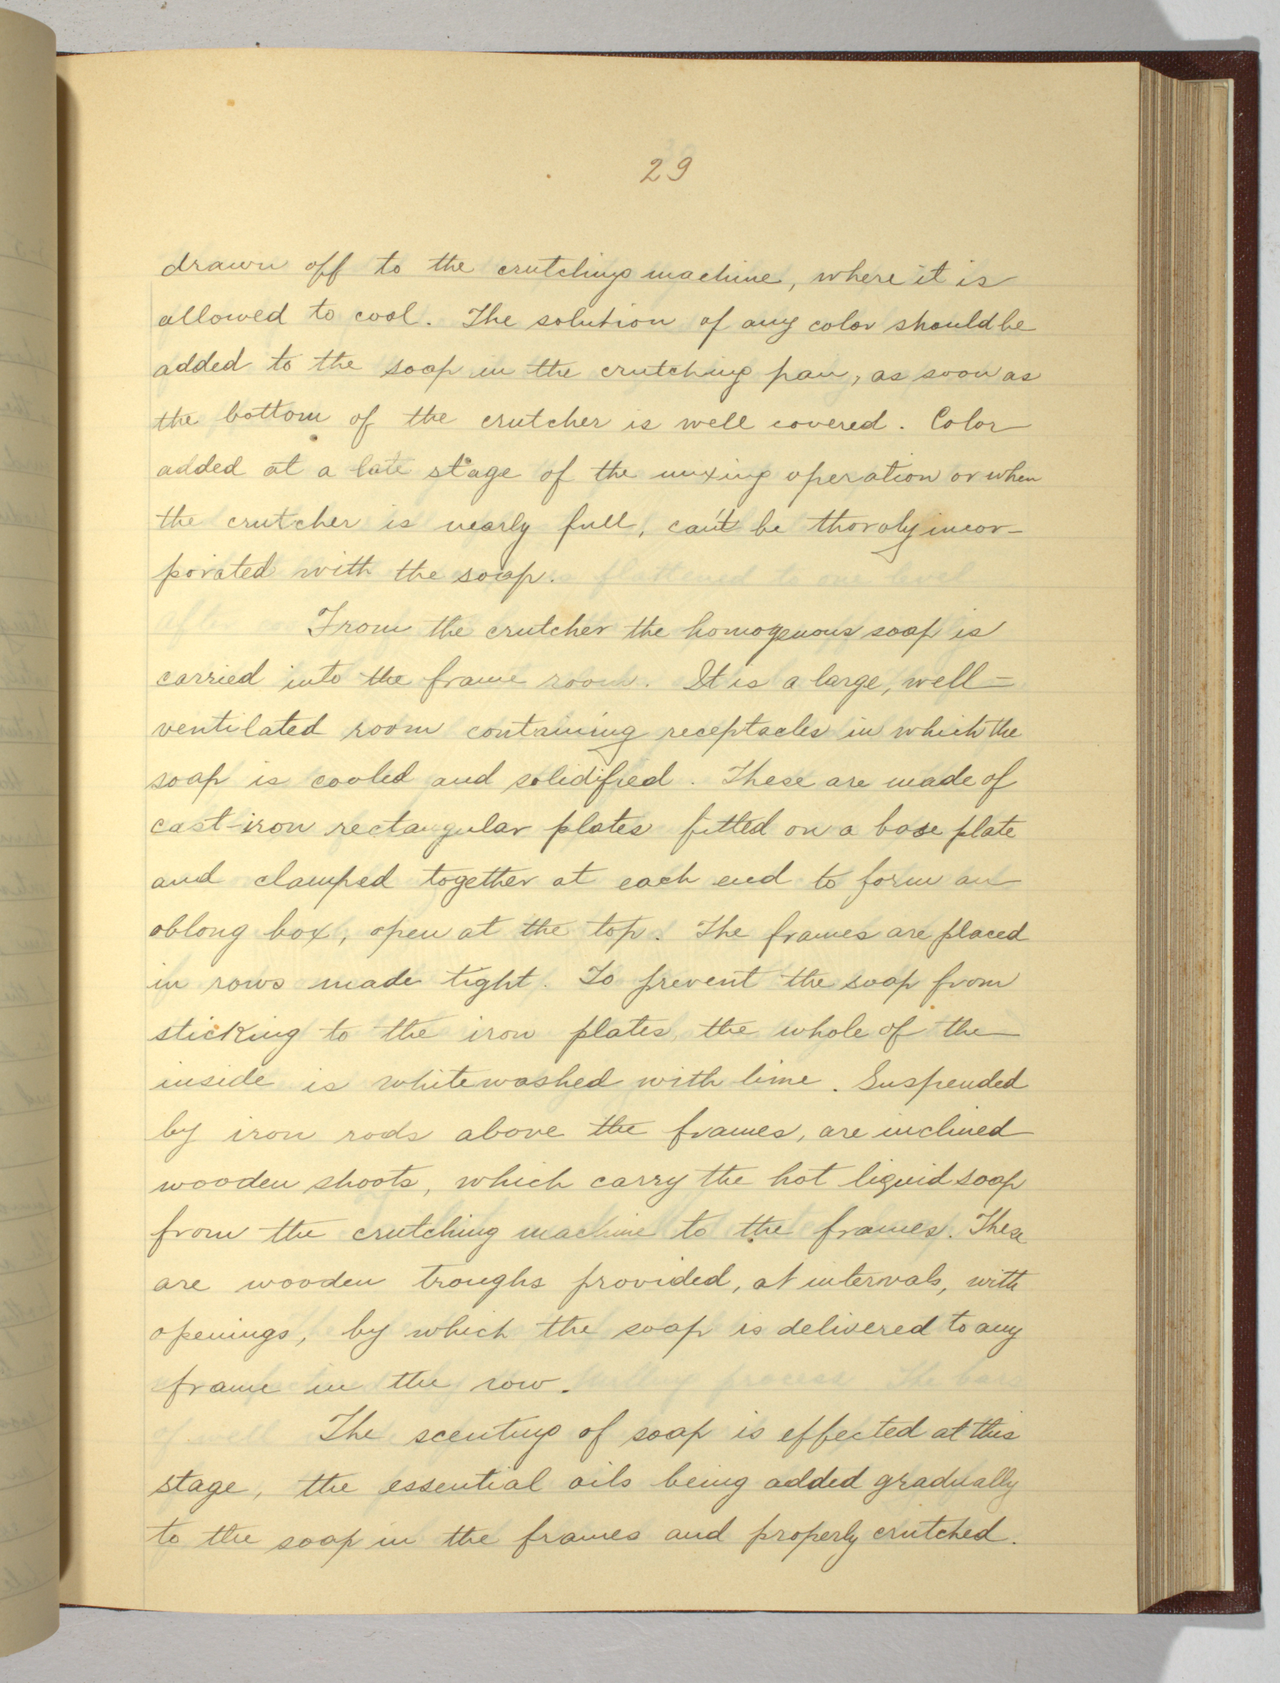 29
drawn off to the crutching machine, where it is
allowed to cool. The solution of any color should be
added to the soap in the crutching pan, as soon as
the bottom of the crutcher is well covered. Color
added at a late stage of the mixing operation or when
the crutcher is nearly full, can't be thoroly incor-
porated with the soap.
From the crutcher the homogenous soap is
carried into the frame room. It is a large, well-
ventilated room containing receptacles in which the
soap is cooled and solidified. These are made of
cast-iron rectangular plates fitted on a base plate
and clamped together at each end to form an
oblong box, open at the top. The frames are placed
in rows made tight. To prevent the soap from
sticking to the iron plates, the whole of the
inside is whitewashed with lime. Suspended
by iron rods above the frames, are inclined
wooden shoots, which carry the hot liquid soap
from the crutching machine to the frames. These
are wooden troughs provided, at intervals, with
openings, by which the soap is delivered to any
frame in the row.
The scenting of soap is effected at this
stage, the essential oils being added gradually
to the soap in the frames and properly crutched.